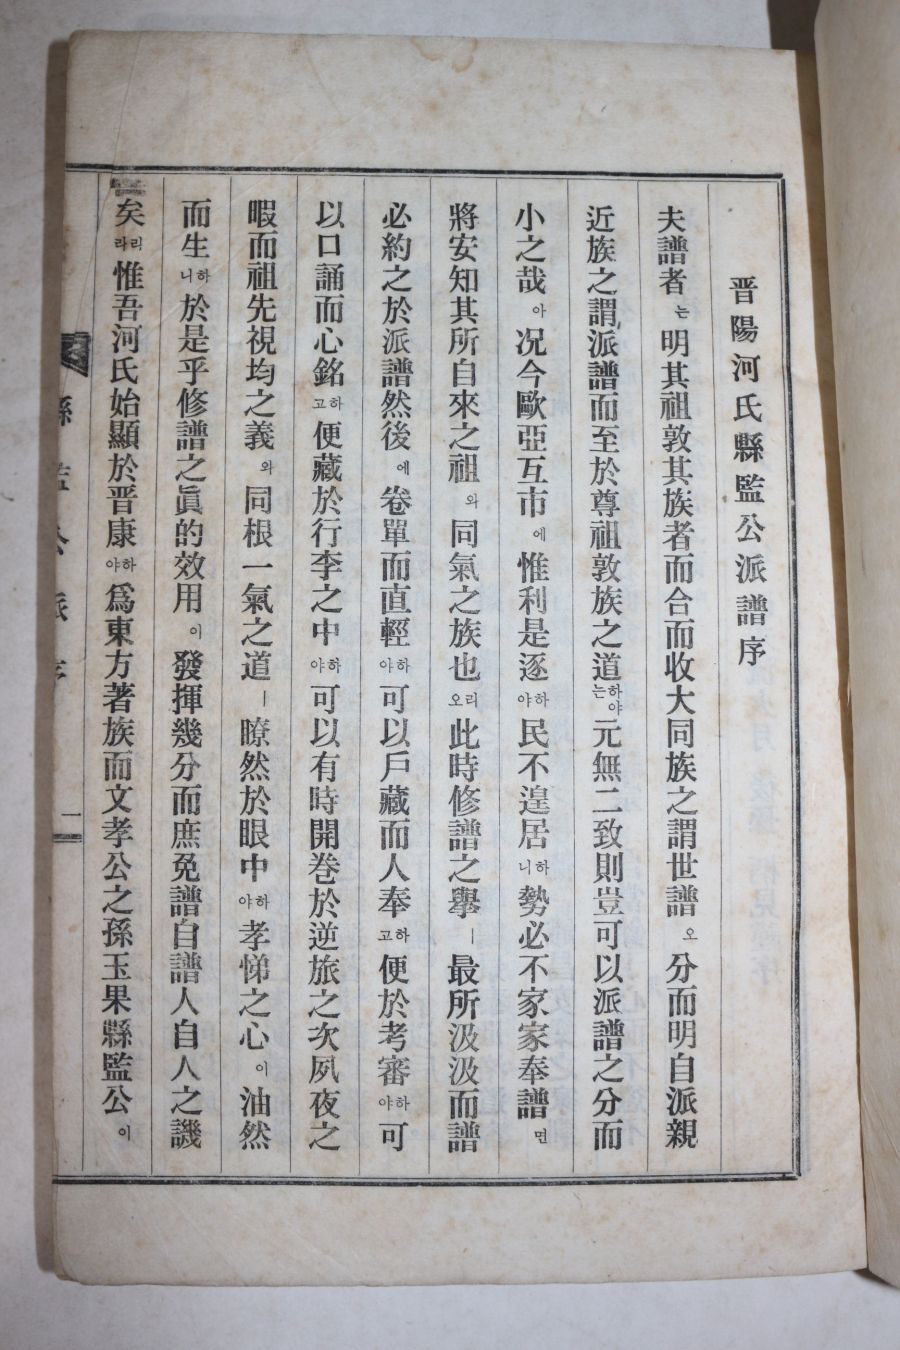 晋陽河氏縣監公派譜序
夫譜者는明其祖敦其族者而合而收大同族之謂世譜오分而明自派親
近族之謂派譜而至於尊祖敦族之道하야는元無二致則豈可以派譜之分而
小之哉아况今歐亞互市에惟利是逐하야民不遑居하니勢必不家家奉譜면
將安知其所自來之祖와同氣之族也리오此時修譜之擧ㅣ最所汲汲而譜
必約之於派譜然後에卷單而直輕하야可以戶藏而人奉하고便於考審하야可
以口誦而心銘하고便藏於行李之中하야可以有時開巻於逆旅之次夙夜之
暇而祖先視均之義와同根一氣之道ㅣ瞭然於眼中하야孝悌之心이油然
而生하니於是乎修譜之眞的效用이發揮幾分而庶免譜自譜人自人之譏
矣리라惟吾河氏始顯於晋康하야爲東方著族而文孝公之孫玉果縣監公이
縣監公派序
一